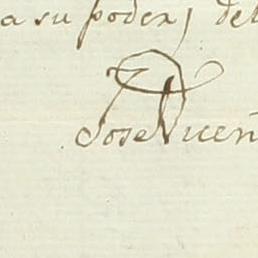 a su poder; del
Jose Vicen